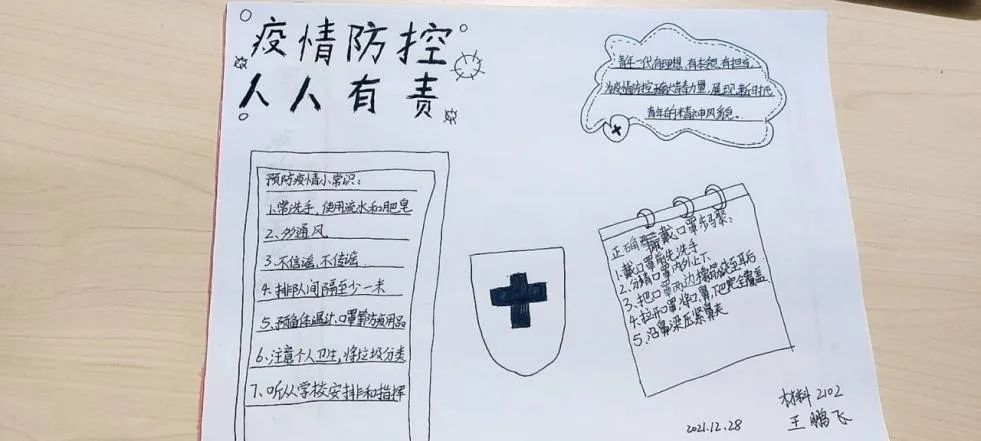 疫情防控
人人有责
青年一代有理想、有本领、有担当
为疫情防控贡献青春力量,展现新时代
青年的精神风貌。
预防疫情小常识:
1.常洗手,使用流水和肥皂
2、多通风
3、不信谣,不传谣
4、排队间隔至少一米
5、预备体温计、口罩等防疫用品
6、注意个人卫生,将垃圾分类
7、听从学校安排和指挥
正确佩戴口罩步骤:
1.戴口罩前先洗手
2、分清口罩内外上下
3、把口罩两边绳挂至耳后
4、拉开口罩将口鼻下巴完全覆盖
5、沿鼻梁压紧鼻夹
材料2102
2021.12.28
王鹏飞